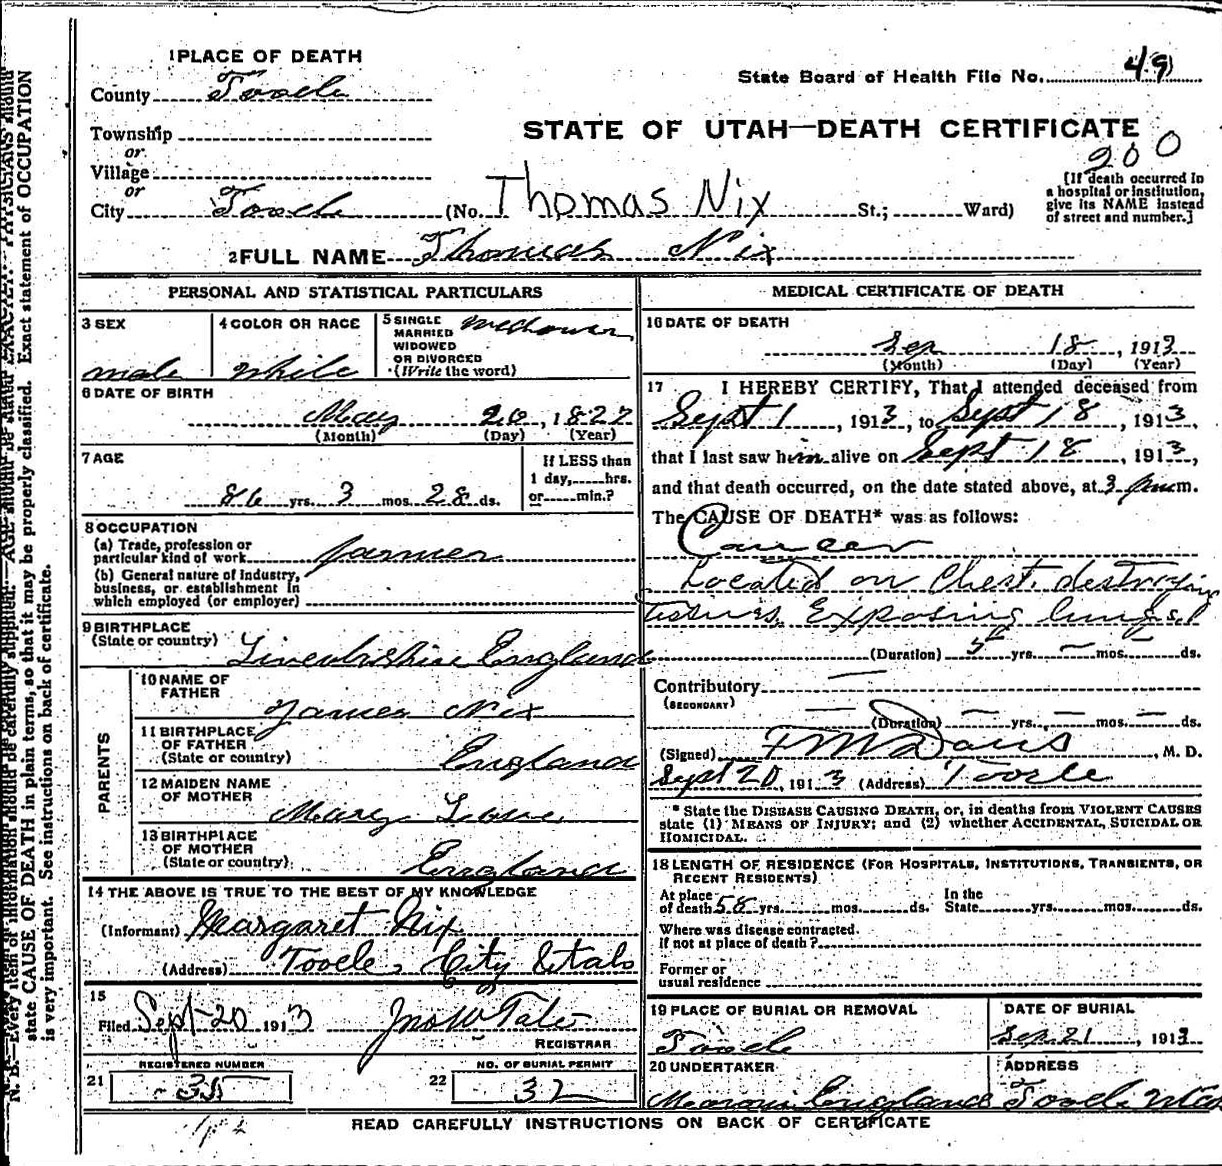 1 PLACE OF DEATH
State Board of Health File No. 49
County Tooele
Township
or
Village
or
City Tooele
STATE OF UTAH—DEATH CERTIFICATE
200
(No. Thomas Nix St.; Ward)
[If death occurred in
a hospital or institution,
give its NAME instead
of street and number.]
2 FULL NAME Thomas Nix
PERSONAL AND STATISTICAL PARTICULARS
3 SEX
male
4 COLOR OR RACE
white
5 SINGLE
MARRIED
WIDOWED
OR DIVORCED
(Write the word)
6 DATE OF BIRTH
May 20, 1827
(Month) (Day) (Year)
7 AGE
86 yrs. 3 mos. 28 ds.
If LESS than
1 day, hrs.
or min.?
8 OCCUPATION
(a) Trade, profession or
particular kind of work farmer
(b) General nature of industry,
business, or establishment in
which employed (or employer)
9 BIRTHPLACE
(State or country) Lincolnshire England
PARENTS
10 NAME OF
FATHER
James Nix
11 BIRTHPLACE
OF FATHER
(State or country) England
12 MAIDEN NAME
OF MOTHER
Mary
13 BIRTHPLACE
OF MOTHER
(State or country) England
14 THE ABOVE IS TRUE TO THE BEST OF MY KNOWLEDGE
(Informant) Margaret Nix
(Address) Tooele City Utah
15
Filed Sept 20 1913 Jno W Tate
REGISTRAR
REGISTERED NUMBER
21 35
NO. OF BURIAL PERMIT
22 32
MEDICAL CERTIFICATE OF DEATH
16 DATE OF DEATH
Sep 18, 1913
(Month) (Day) (Year)
17 I HEREBY CERTIFY, That I attended deceased from
Sept 1, 1913, to Sept 18, 1913,
that I last saw him alive on Sept 18, 1913,
and that death occurred, on the date stated above, at 3 m.
The CAUSE OF DEATH* was as follows:
Cancer
Located on Chest, destroying
tissues, Exposing lungs.
(Duration) yrs. — mos. — ds.
Contributory —
(SECONDARY)
— — (Duration) — yrs. — mos. — ds.
(Signed) F M Davis, M. D.
Sept 20, 1913 (Address) Tooele
* State the DISEASE CAUSING DEATH, or, in deaths from VIOLENT CAUSES
state (1) MEANS OF INJURY; and (2) whether ACCIDENTAL, SUICIDAL OR
HOMICIDAL.
18 LENGTH OF RESIDENCE (FOR HOSPITALS, INSTITUTIONS, TRANSIENTS, OR
RECENT RESIDENTS)
At place
of death 58 yrs. mos. ds.
In the
State yrs. mos. ds.
Where was disease contracted.
If not at place of death?
Former or
usual residence
19 PLACE OF BURIAL OR REMOVAL
Tooele
DATE OF BURIAL
Sep. 21, 1913
20 UNDERTAKER
Maroni England
ADDRESS
Tooele Utah
READ CAREFULLY INSTRUCTIONS ON BACK OF CERTIFICATE
N. B.—Every item of information should be carefully supplied. AGE should be stated EXACTLY. PHYSICIANS should
state CAUSE OF DEATH in plain terms, so that it may be properly classified. Exact statement of OCCUPATION
is very important. See instructions on back of certificate.